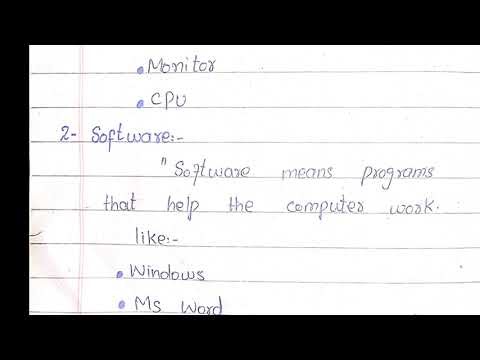 • Monitor
• CPU
2- Software:-
" Software means programs
that help the computer work.
like:-
• Windows
• Ms Word